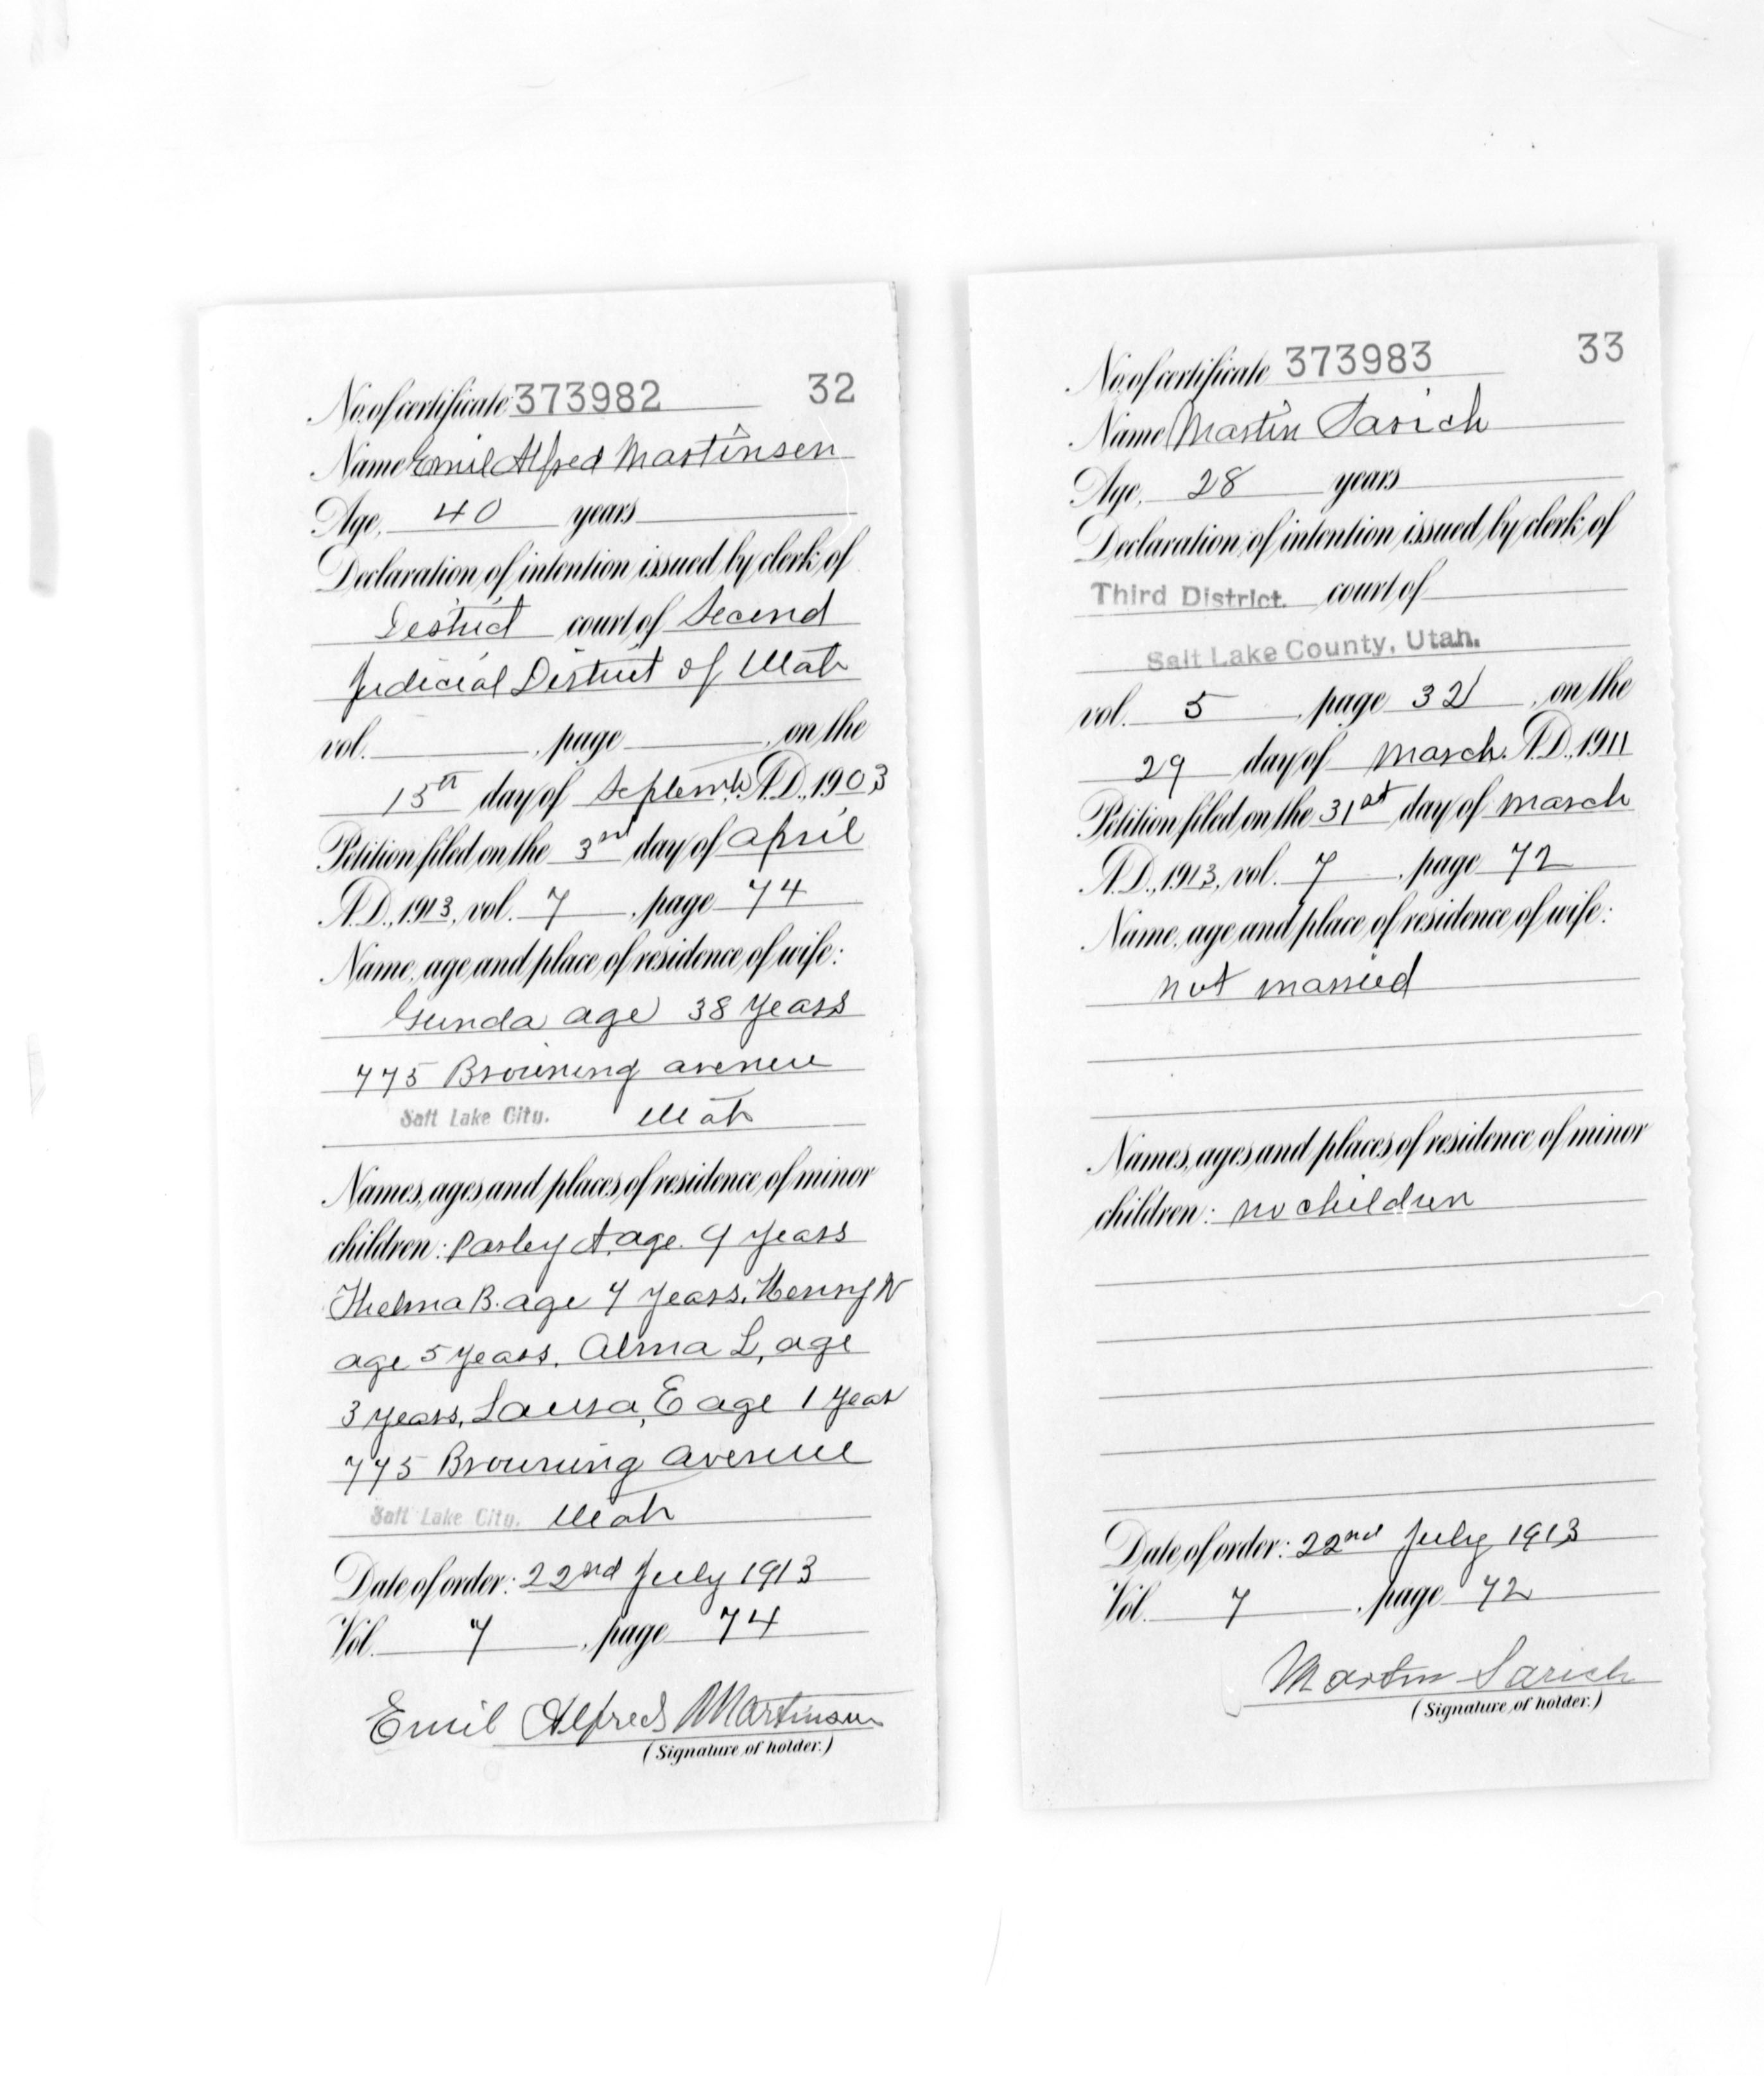 No. of certificate 373982 32
Name Emil Alfred Martinsen
Age, 40 years
Declaration of intention issued by clerk of
District court of Second
Judicial District of Utah
vol. , page , on the
15th day of Septemb. A.D., 1903
Petition filed on the 3rd day of april
A.D., 1913, vol. 7, page 74
Name, age and place of residence of wife:
Gunda age 38 years
775 Browning avenue
Salt Lake City. Utah
Names, ages and places of residence of minor
children: Parley A. age. 9 years
Thelma B. age 7 years. Henry N
age 5 years, Alma L, age
3 years, Laura, E age 1 year
775 Browning avenue
Salt Lake City. Utah
Date of order: 22nd July 1913
Vol. 7, page 74
Emil Alfred Martinsen
(Signature of holder.)
No. of certificate 373983 33
Name Martin Sarich
Age, 28 years
Declaration of intention issued by clerk of
Third District. court of
Salt Lake County, Utah.
vol. 5, page 32, on the
29 day of March. A.D., 1911
Petition filed on the 31st day of march
A.D., 1913, vol. 7, page 72
Name, age and place of residence of wife:
not married
Names, ages and places of residence of minor
children: no children
Date of order: 22nd July 1913
Vol. 7, page 72
Martin Sarich
(Signature of holder.)